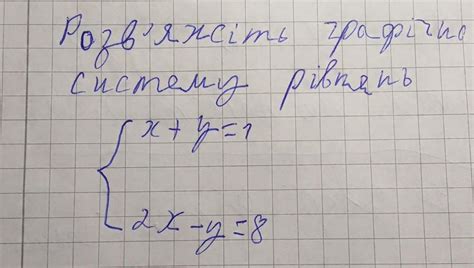 Розв'яжіть графічно
систему рівнянь
x + y = 1
2x - y = 8